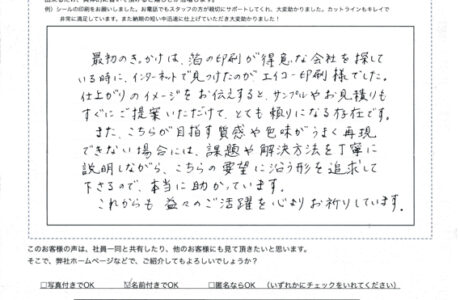 例）シールの印刷をお願いしました。お電話でもスタッフの方が親切にサポートしてくれ、大変助かりました。カットラインもキレイで
非常に満足しています。また納期の短い中迅速に仕上げていただき大変助かりました！
最初のきっかけは、箔の印刷が得意な会社を探して
いる時に、インターネットで見つけたのがエイコー印刷様でした。
仕上がりのイメージをお伝えすると、サンプルやお見積りも
すぐにご提案いただけて、とても頼りになる存在です。
また、こちらが目指す質感や色味がうまく再現
できない場合には、課題や解決方法を丁寧に
説明しながら、こちらの要望に沿う形を追求して
下さるので、本当に助かっています。
これからも益々のご活躍を心よりお祈りしています。
このお客様の声は、社員一同と共有したり、他のお客様にも見て頂きたいと思います。
そこで、弊社ホームページなどで、ご紹介してもよろしいでしょうか？
□写真付きでOK ☑名前付きでOK □匿名ならOK （いずれかにチェックをいれてください）